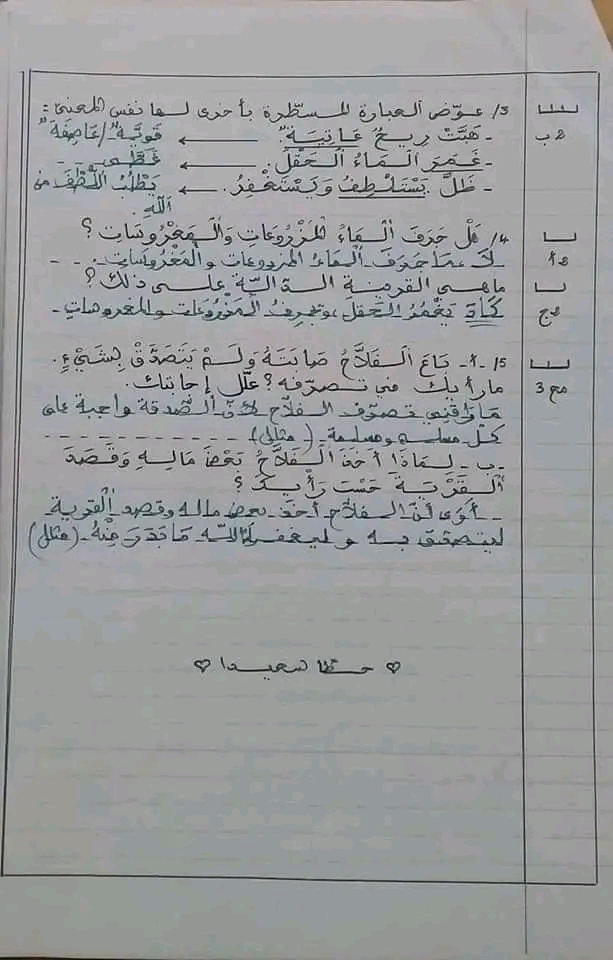 3/ عوّض العبارة المسطّرة بأخرى لها نفس المعنى:
- هَبَّتْ رِيحٌ عَاتِيَةٌ. ← قَوِيَّةٌ / عَاصِفَةٌ
- غَمَرَ الْمَاءُ الْحَقْلَ. ← غَطَّى
- ظَلَّ يَسْتَلْطِفُ وَيَسْتَغْفِرُ. ← يَطْلُبُ اللُّطْفَ من
اللّٰهِ
مع 2 ب
4/ هَلْ جَرَفَ الْمَاءُ الْمَزْرُوعَاتِ وَالْمَغْرُوسَاتِ؟
لَا مَا جَرَفَ الماءُ المزروعات والمغروسات
ما هي القرينة الدّالّة على ذلك؟
كَادَ يَغْمُرُ الْحَقْلَ وَيَجْرِفُ الْمَزْرُوعَاتِ والمغروسات
5/ أ- بَاعَ الْفَلَّاحُ صَابَتَهُ وَلَمْ يَتَصَدَّقْ بِشَيْءٍ.
ما رأيك في تصرّفه؟ علّل إجابتك.
مع 3
تصرّف الفلّاح لأنّ الصّدقة واجبة على
كلّ مسلم ومسلمة. (مثال)
ب- لِمَاذَا أَخَذَ الْفَلَّاحُ بَعْضَ مَالِهِ وَقَصَدَ
الْقَرْيَةَ حَسْبَ رَأْيِكَ؟
أرى أنّ الفلّاح أخذ بعض ماله وقصد القرية
ليتصدّق به وليغفر اللّٰه مَا بَدَرَ مِنْهُ. (مثال)
♡ حظّا سعيدا ♡